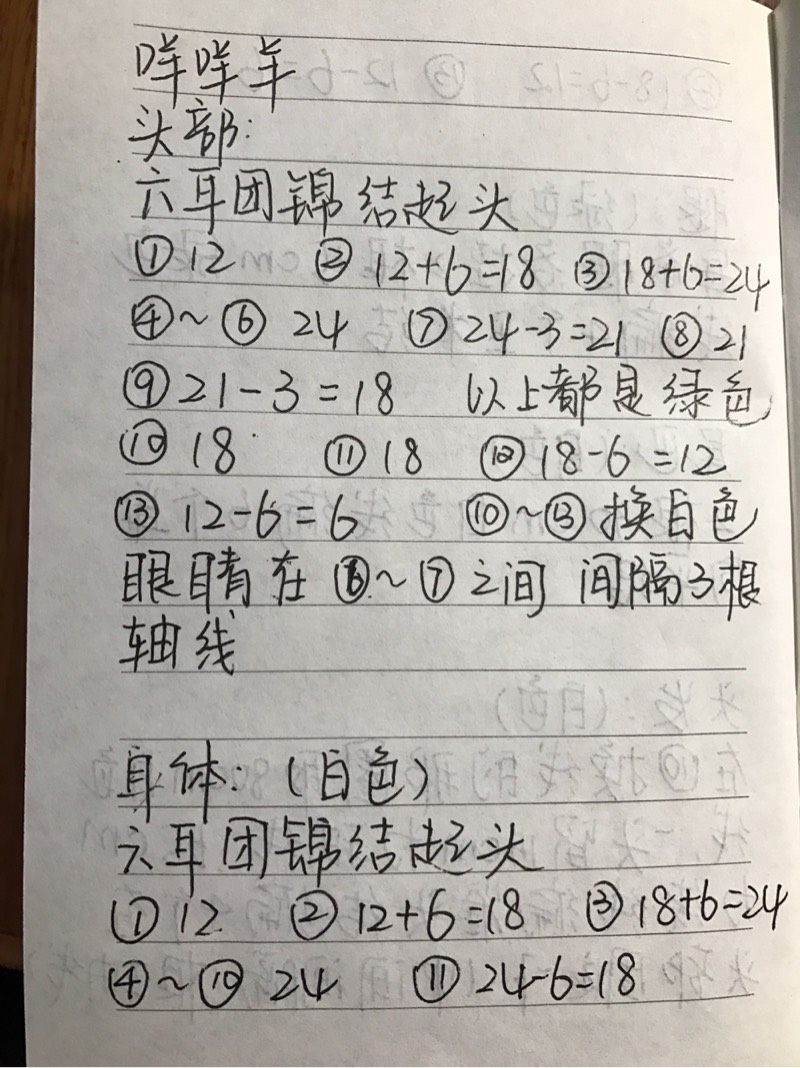 咩咩羊
头部:
六耳团锦结起头
① 12 ② 12+6=18 ③ 18+6=24
④~⑥ 24 ⑦ 24-3=21 ⑧ 21
⑨ 21-3=18 以上都是绿色
⑩ 18 ⑪ 18 ⑫ 18-6=12
⑬ 12-6=6 ⑩~⑬ 换白色
眼睛在 ⑥~⑦ 之间 间隔3根
轴线
身体:(白色)
六耳团锦结起头
① 12 ② 12+6=18 ③ 18+6=24
④~⑩ 24 ⑪ 24-6=18